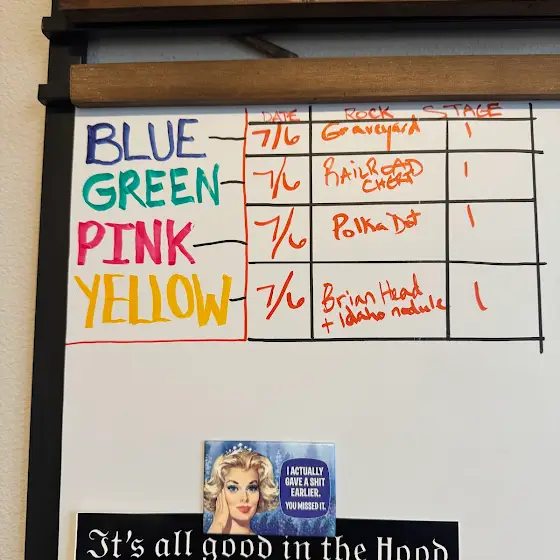 DATE ROCK STAGE
BLUE 7/6 Graveyard 1
GREEN 7/6 RAILROAD
CHERT 1
PINK 7/6 Polka Dot 1
YELLOW 7/6 Brian Head
+ Idaho nodule 1
I ACTUALLY
GAVE A SHIT
EARLIER.
YOU MISSED IT.
It's all good in the Hood